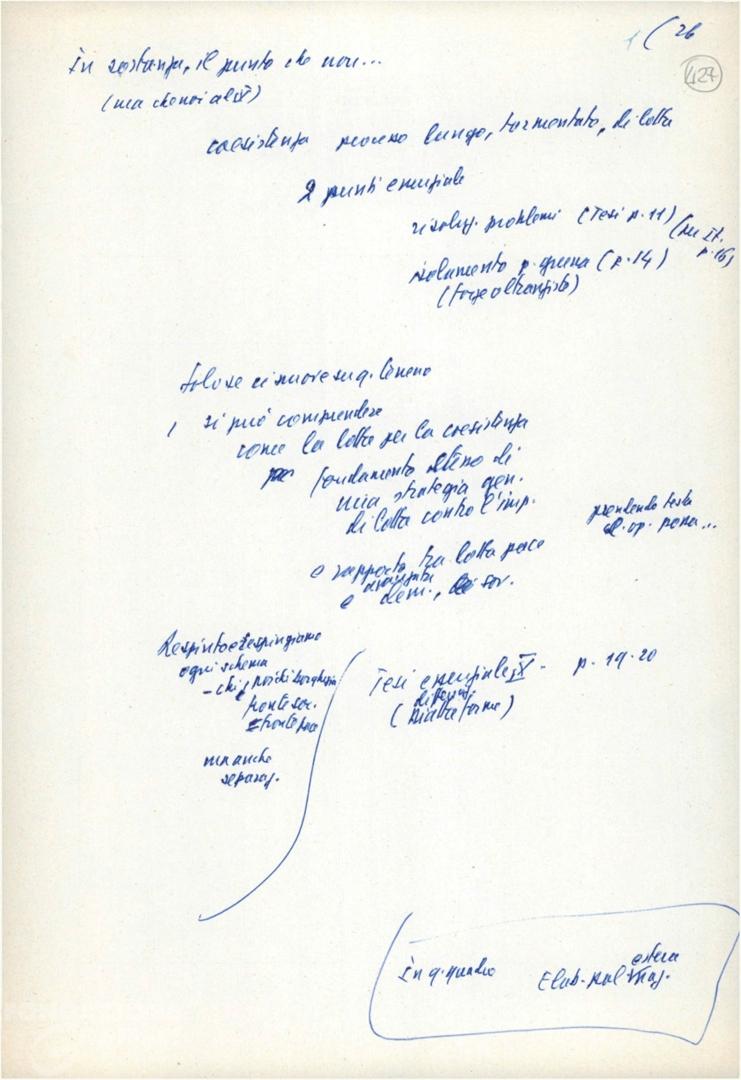 ( 26
427
In sostanza, il punto che non...
(ma che noi al IX)
coesistenza processo lungo, tormentato, di lotta
2 punti essenziale
risoluz. problemi (Tesi p. 11) (su IX. p. 16)
isolamento p. guerra (p. 14)
(forze oltranziste)
Solo se ci si muove su q. terreno
si può comprendere
come la lotta per la coesistenza
fondamento stesso di
una strategia gen.
di lotta contro l'imp.
prendendo testa
op. pona...
e rapporto tra lotta pace
avanzata
e dem., soc.
Respinto e respingiamo
ogni schema
- chi
fronte soc.
fronte pace
ma anche
separaz.
Tesi essenziale, IX - p. 19-20
(piattaforme)
In q. quadro
estera
Elab. pol. maj.